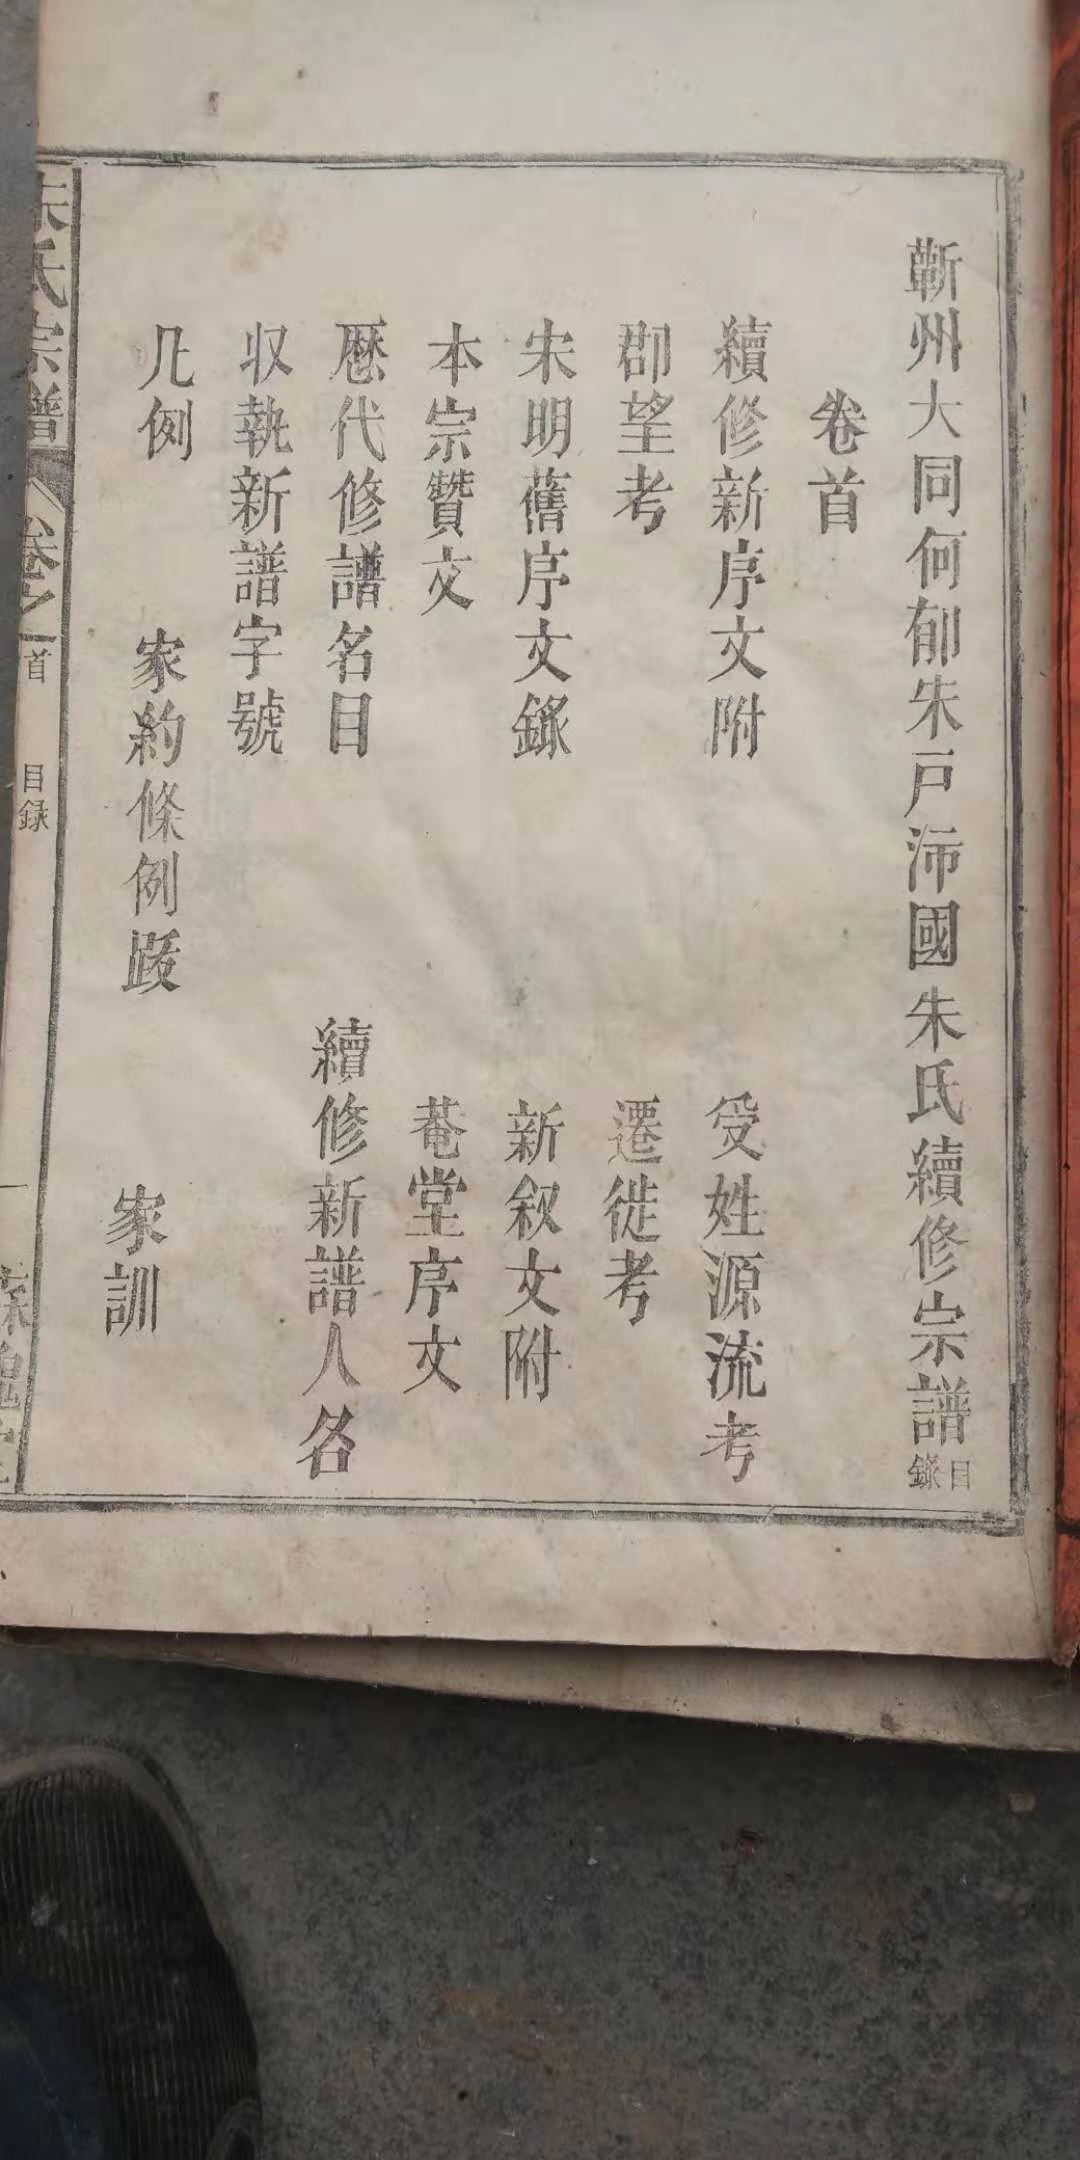 蘄州大同何郁朱戸沛國朱氏續修宗譜目錄
卷首
續修新序文附 受姓源流考
郡望考 遷徙考
宋明舊序文錄 新叙文附
本宗贊文 菴堂序文
歷代修譜名目 續修新譜人名
収執新譜字號
凡例 家約條例跋 家訓
朱氏宗譜 卷之首 目録 一